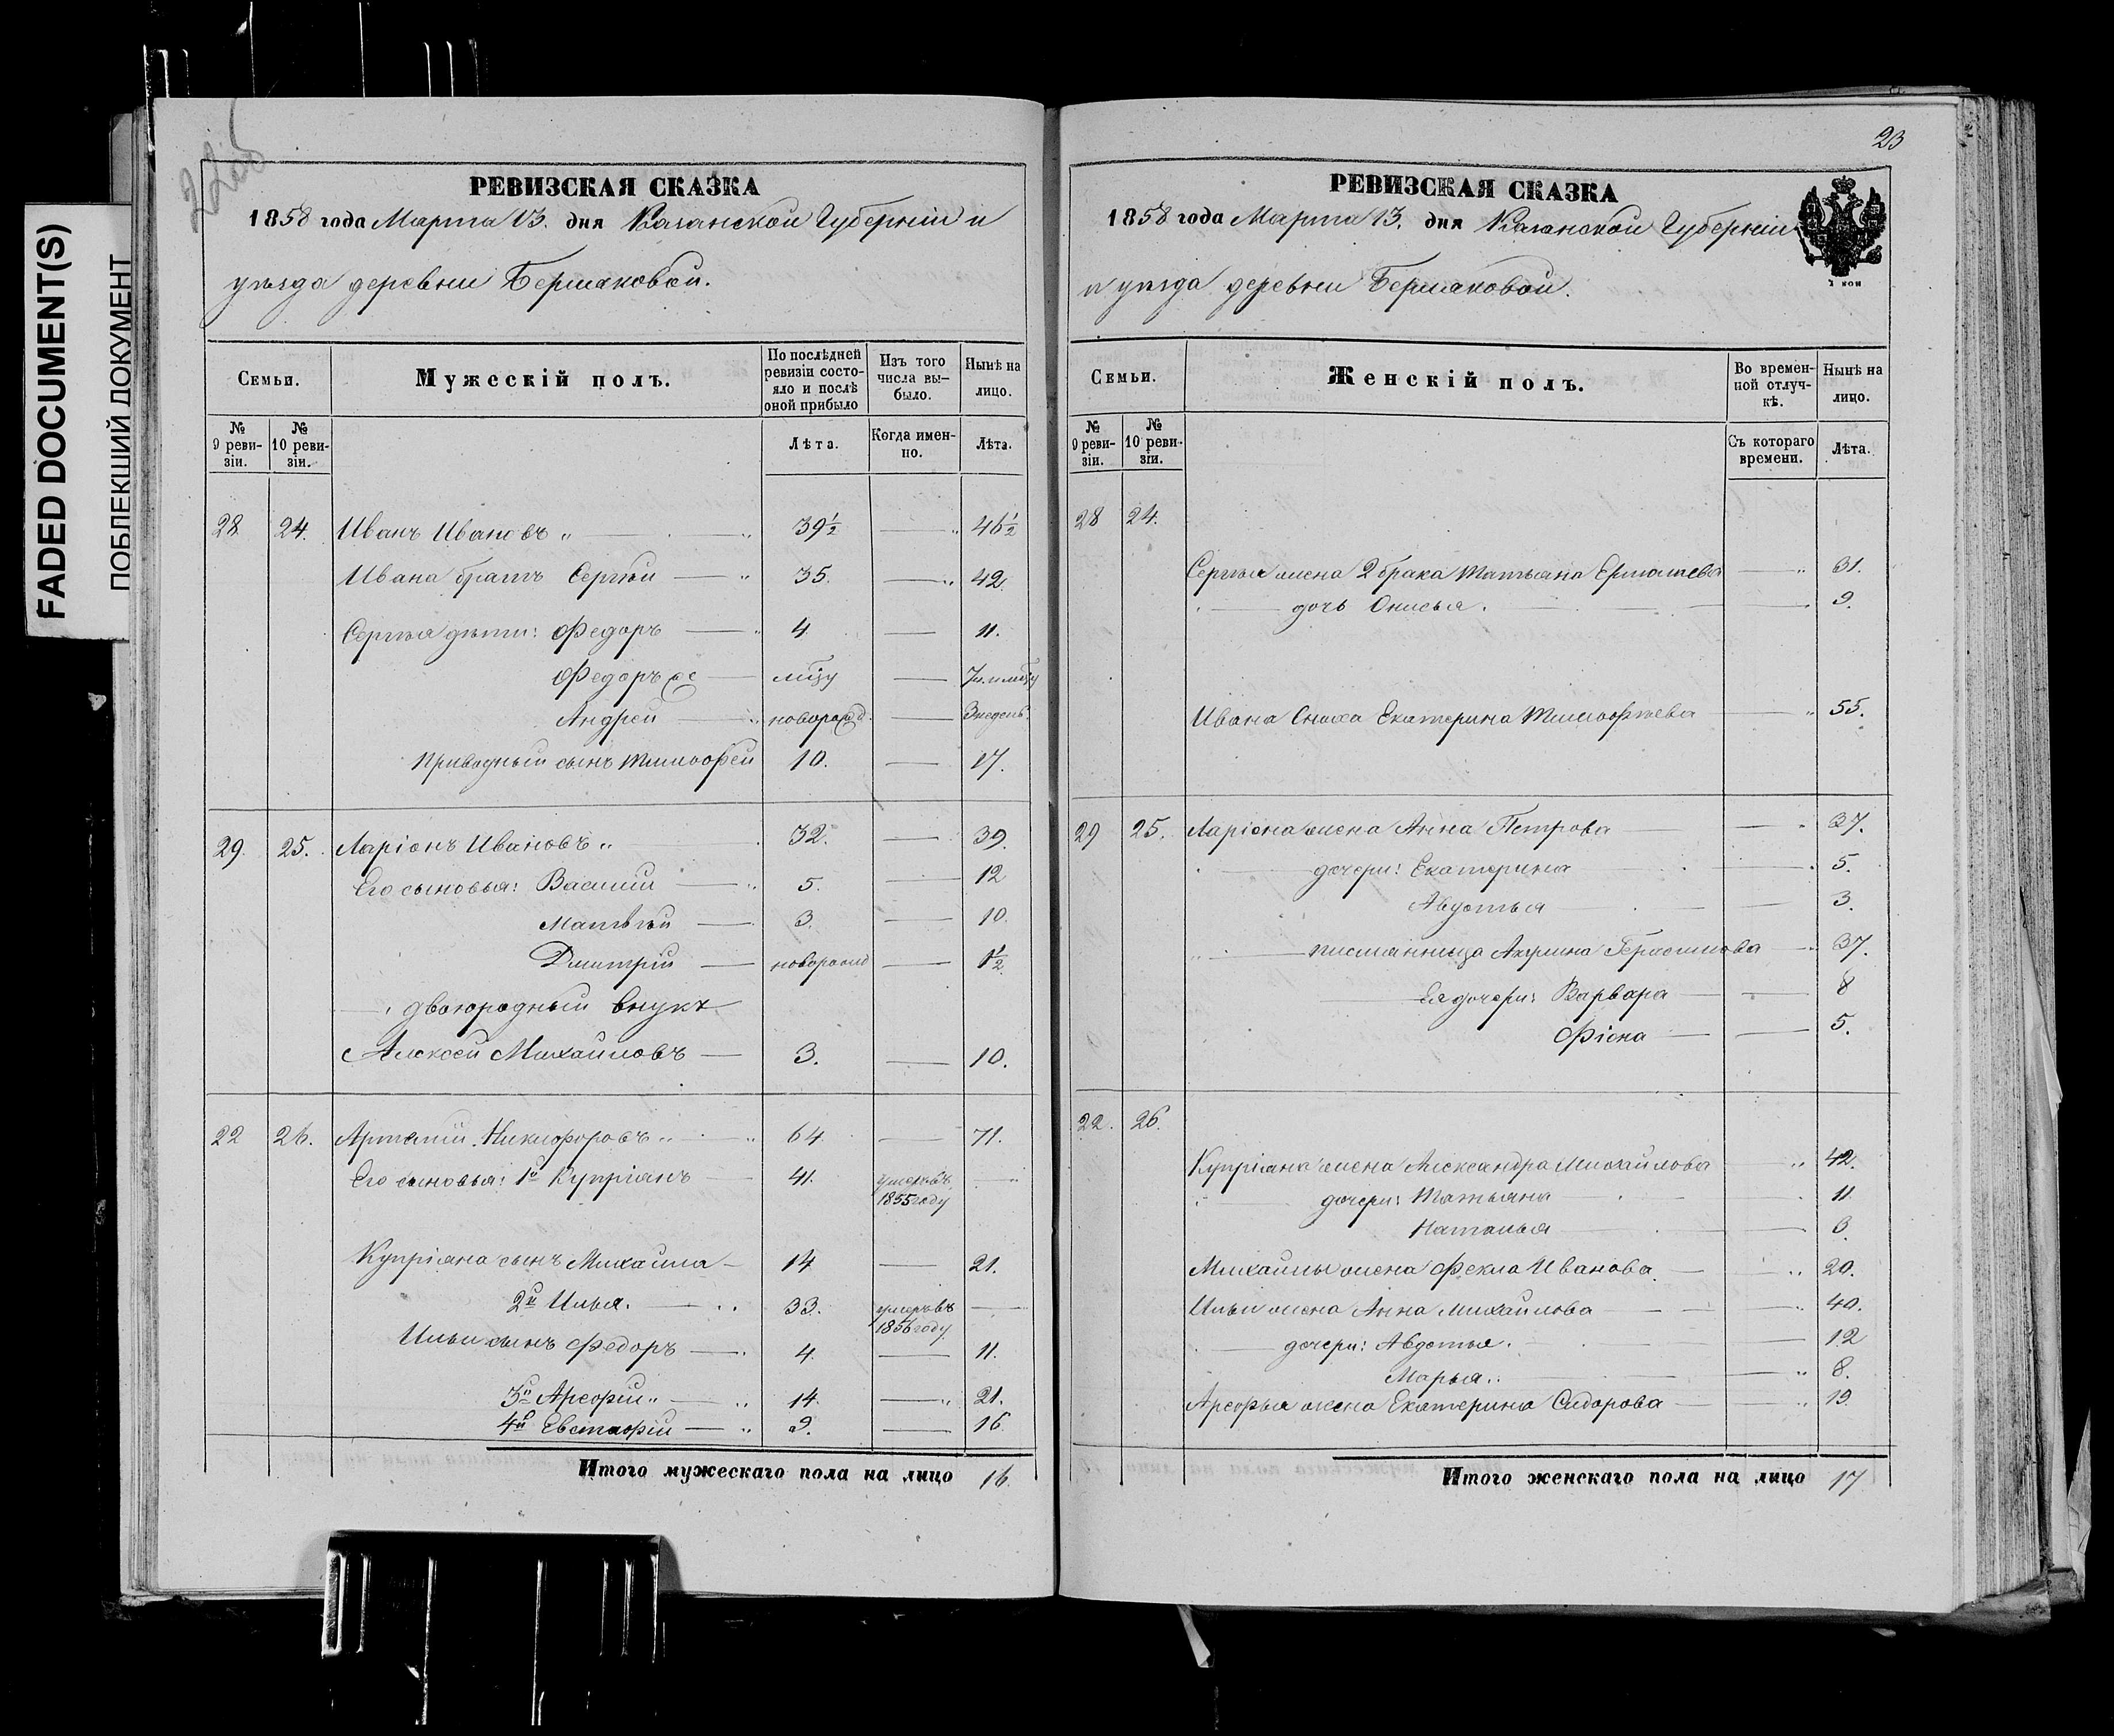 FADED DOCUMENT(S)
ПОБЛЕКШИЙ ДОКУМЕНТ
РЕВИЗСКАЯ СКАЗКА
1858 года Марта 13. дня Казанской Губерніи и
уѣзда деревни Бермаковой.
Семьи.
Мужескій полъ.
По послѣдней ревизіи состояло и послѣ оной прибыло
Изъ того числа выбыло.
Нынѣ на лицо.
№ 9 ревизіи.
№ 10 ревизіи.
Лѣта.
Когда именно.
Лѣта.
28 24. Иванъ Ивановъ 39½ 46½
Ивана братъ Сергѣй 35. 42.
Сергѣя дѣти: Федоръ 4 11.
Федоръ же 7
Андрей новорожд. 3 недель
Приводный сынъ Тимофей 10. 17.
29. 25. Ларіонъ Ивановъ 32. 39.
Его сыновья: Василий 5. 12
Матвѣй 3. 10.
Дмитрій новорожд 1½
двоюродный внукъ
Алексей Михайловъ 3. 10.
22 26. Артемій Никифоровъ 64 71.
Его сыновья: 1й Купріянъ 41. умеръ въ
1855 году
Купріяна сынъ Михайла 14 21.
2й Илья. 33. умеръ въ
1856 году
Ильи сынъ Федоръ 4. 11.
3й Арефій 14. 21.
4й Евстафій 9. 16
Итого мужескаго пола на лицо 16.
23
РЕВИЗСКАЯ СКАЗКА
1858 года Марта 13. дня Казанской Губерніи
и уѣзда деревни Бермаковой.
Семьи.
Женскій полъ.
Во временной отлучкѣ.
Нынѣ на лицо.
№ 9 ревизіи.
№ 10 ревизіи.
Съ котораго времени.
Лѣта.
28 24.
Сергѣя жена 2 брака Татьяна Ермолаева 31.
дочь Онисья. 9.
Ивана Сноха Екатерина Тимофѣева 55.
29 25. Ларіона жена Анна Петрова 37.
дочери: Екатерина 5.
Авдотья 3.
племянница Акулина Герасимова 37.
Ея дочери: Варвара 8
Фіона 5.
22. 26.
Купріяна жена Александра Михайлова 42.
дочери: Татьяна 11.
Наталья 3.
Михайлы жена Фекла Иванова. 20.
Ильи жена Анна Михайлова 40.
дочери: Авдотья. 12
Марья. 8.
Арефья жена Екатерина Сидорова 19.
Итого женскаго пола на лицо 17